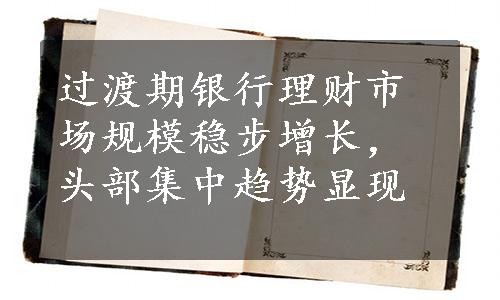 过渡期银行理财市
场规模稳步增长，
头部集中趋势显现